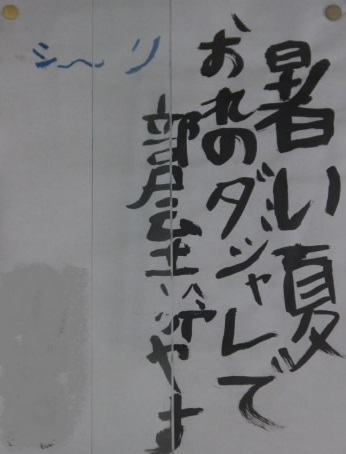 暑い夏
おれのダジャレで
部屋冷やす
シ〜〜リ